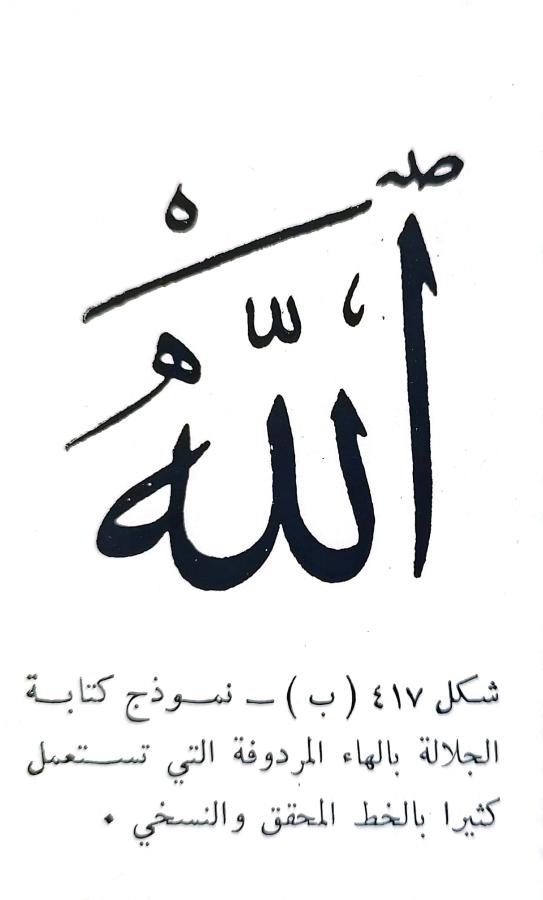 الله
شكل ٤١٧ (ب) ــ نمـوذج كتابـة
الجلالة بالهاء المردوفة التي تستعمل
كثيرا بالخط المحقق والنسخي .